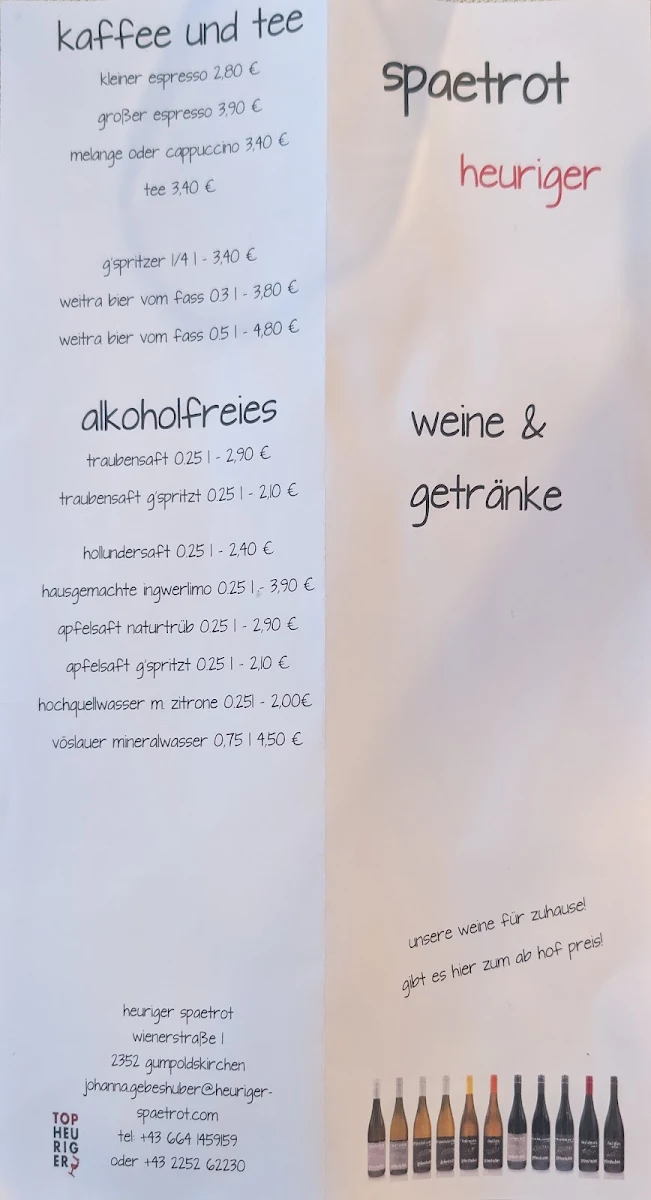 kaffee und tee
kleiner espresso 2,80 €
großer espresso 3,90 €
melange oder cappuccino 3,40 €
tee 3,40 €
g'spritzer 1/4 l - 3,40 €
weitra bier vom fass 0.3 l - 3,80 €
weitra bier vom fass 0.5 l - 4,80 €
alkoholfreies
traubensaft 0.25 l - 2,90 €
traubensaft g'spritzt 0.25 l - 2,10 €
hollundersaft 0.25 l - 2,40 €
hausgemachte ingwerlimo 0.25 l,- 3,90 €
apfelsaft naturtrüb 0.25 l - 2,90 €
apfelsaft g'spritzt 0.25 l - 2,10 €
hochquellwasser m. zitrone 0.25l - 2,00€
vöslauer mineralwasser 0,75 l 4,50 €
heuriger spaetrot
wienerstraße 1
2352 gumpoldskirchen
johanna.gebeshuber@heuriger-
spaetrot.com
tel: +43 664 1459159
oder +43 2252 62230
TOP
HEU
RIG
ER
spaetrot
heuriger
weine &
getränke
unsere weine für zuhause!
gibt es hier zum ab hof preis!